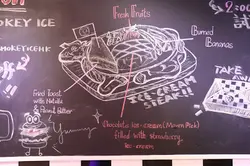 Fresh Fruits
KEY ICE
Burned
Bananas
ICE-CREAM
STEAK!!
TAKE
AWAY
Fried Toast
with Nutella
& Peanut Butter
Yummy
Chocolate ice-cream (Mövenpick)
filled with strawberry
ice-cream